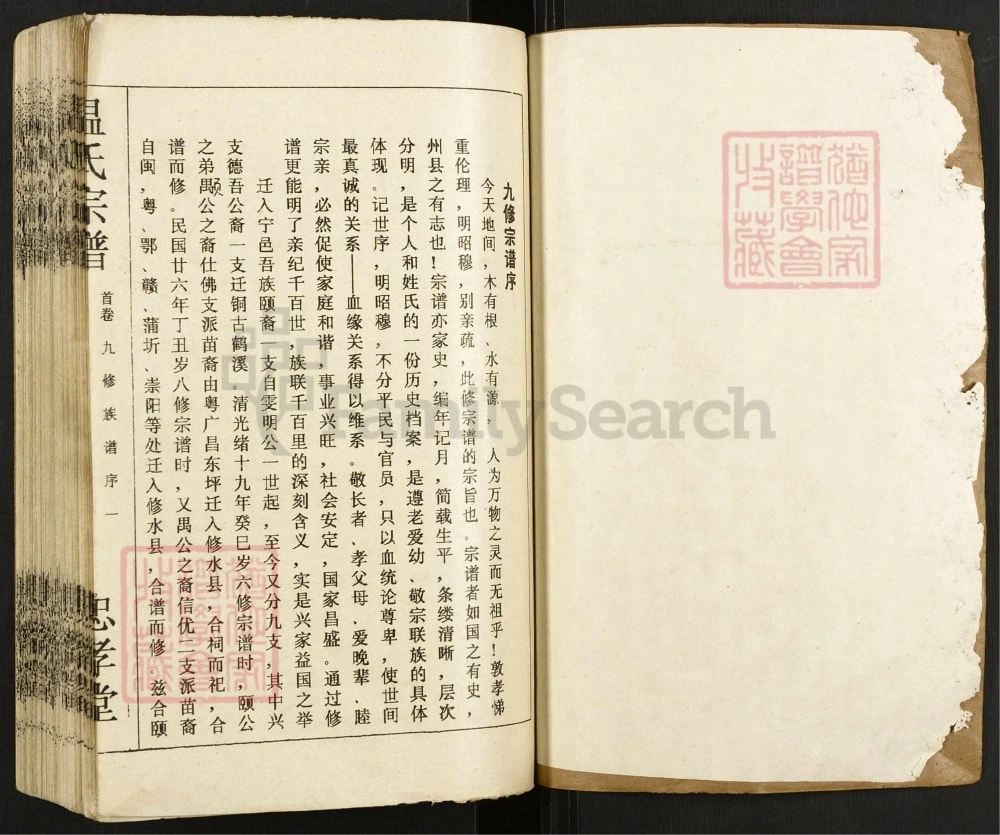 九修宗谱序
今天地间，木有根、水有源，人为万物之灵而无祖乎！敦孝悌
重伦理，明昭穆，别亲疏，此修宗谱的宗旨也。宗谱者如国之有史，
州县之有志也！宗谱亦家史，编年记月，简载生平，条缕清晰，层次
分明，是个人和姓氏的一份历史档案，是遵老爱幼、敬宗联族的具体
体现。记世序，明昭穆，不分平民与官员，只以血统论尊卑，使世间
最真诚的关系——血缘关系得以维系。敬长者、孝父母、爱晚辈、睦
宗亲，必然促使家庭和谐，事业兴旺，社会安定，国家昌盛。通过修
谱更能明了亲纪千百世，族联千百里的深刻含义，实是兴家益国之举
迁入宁邑吾族颐裔一支自雯明公一世起，至今又分九支，其中兴
支德吾公裔一支迁铜古鹤溪。清光绪十九年癸巳岁六修宗谱时，颐公
之弟颙禺公之裔仕佛支派苗裔由粤广昌东坪迁入修水县，合祠而祀，合
谱而修。民国廿六年丁丑岁八修宗谱时，又禺公之裔信优二支派苗裔
自闽，粤、鄂、赣、蒲圻、崇阳等处迁入修水县，合谱而修。兹合颐
温氏宗谱
首卷 九修族谱序 一
忠孝堂
FamilySearch
猶他家
譜學會
收藏
猶他家
譜學會
收藏